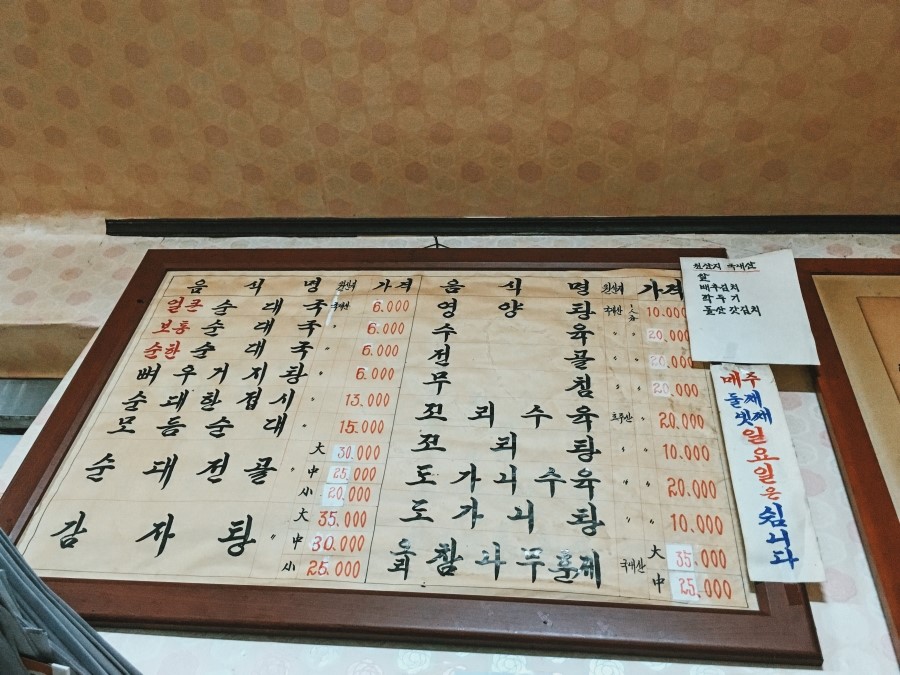 음식명 원산지 가격
얼큰순대국 국내산 6.000
보통순대국 〃 6.000
순한순대국 〃 6.000
뼈우거지탕 〃 6.000
순대한접시 〃 13.000
모듬순대 〃 15.000
순대전골 〃 大 30.000
中 25.000
小 20.000
감자탕 〃 大 35.000
中 30.000
小 25.000
음식명 원산지 가격
영양탕 국내산 10.000
수육 〃 〃 20.000
전골 〃 〃 20.000
무침 〃 〃 20.000
꼬리수육 호주산 〃 20.000
꼬리탕 〃 〃 10.000
도가니수육 〃 〃 20.000
도가니탕 〃 〃 10.000
오리참나무훈제 국내산 大 35.000
中 25.000
원산지 국내산
쌀
배추김치
깍두기
돌산갓김치
매주
둘째
넷째
일요일은
쉽니다